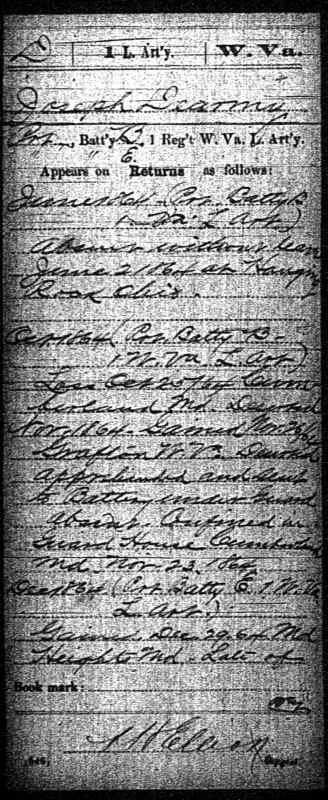 D | 1 L. Art'y. | W. Va.
Joseph Dearmy
Pvt., Batt'y B, 1 Reg't W. Va. L. Art'y.
E.
Appears on Returns as follows:
June 1864 (Pvt. Batty B
1 Va. L. Art.)
Absent without leave
June 2 1864 at Hanging
Rock Ohio.
Oct 1864 (Pvt. Batty B.
1. W. Va L. Art.)
Loss Oct 25/64 Cum
berland Md. Deserted
Nov. 1864. Gained Nov. 23/64
Grafton W. Va. Deserted
apprehended and sent
to Battery under guard
Absent. Confined in
Guard House Cumberland
Md. Nov. 23, 1864
Dec 1864 (Pvt. Batty E. 1. W. Va
L. Art.)
Gained Dec 29. 64 Md
Heights Md. Late of
Book mark:
(646)
Copyist.